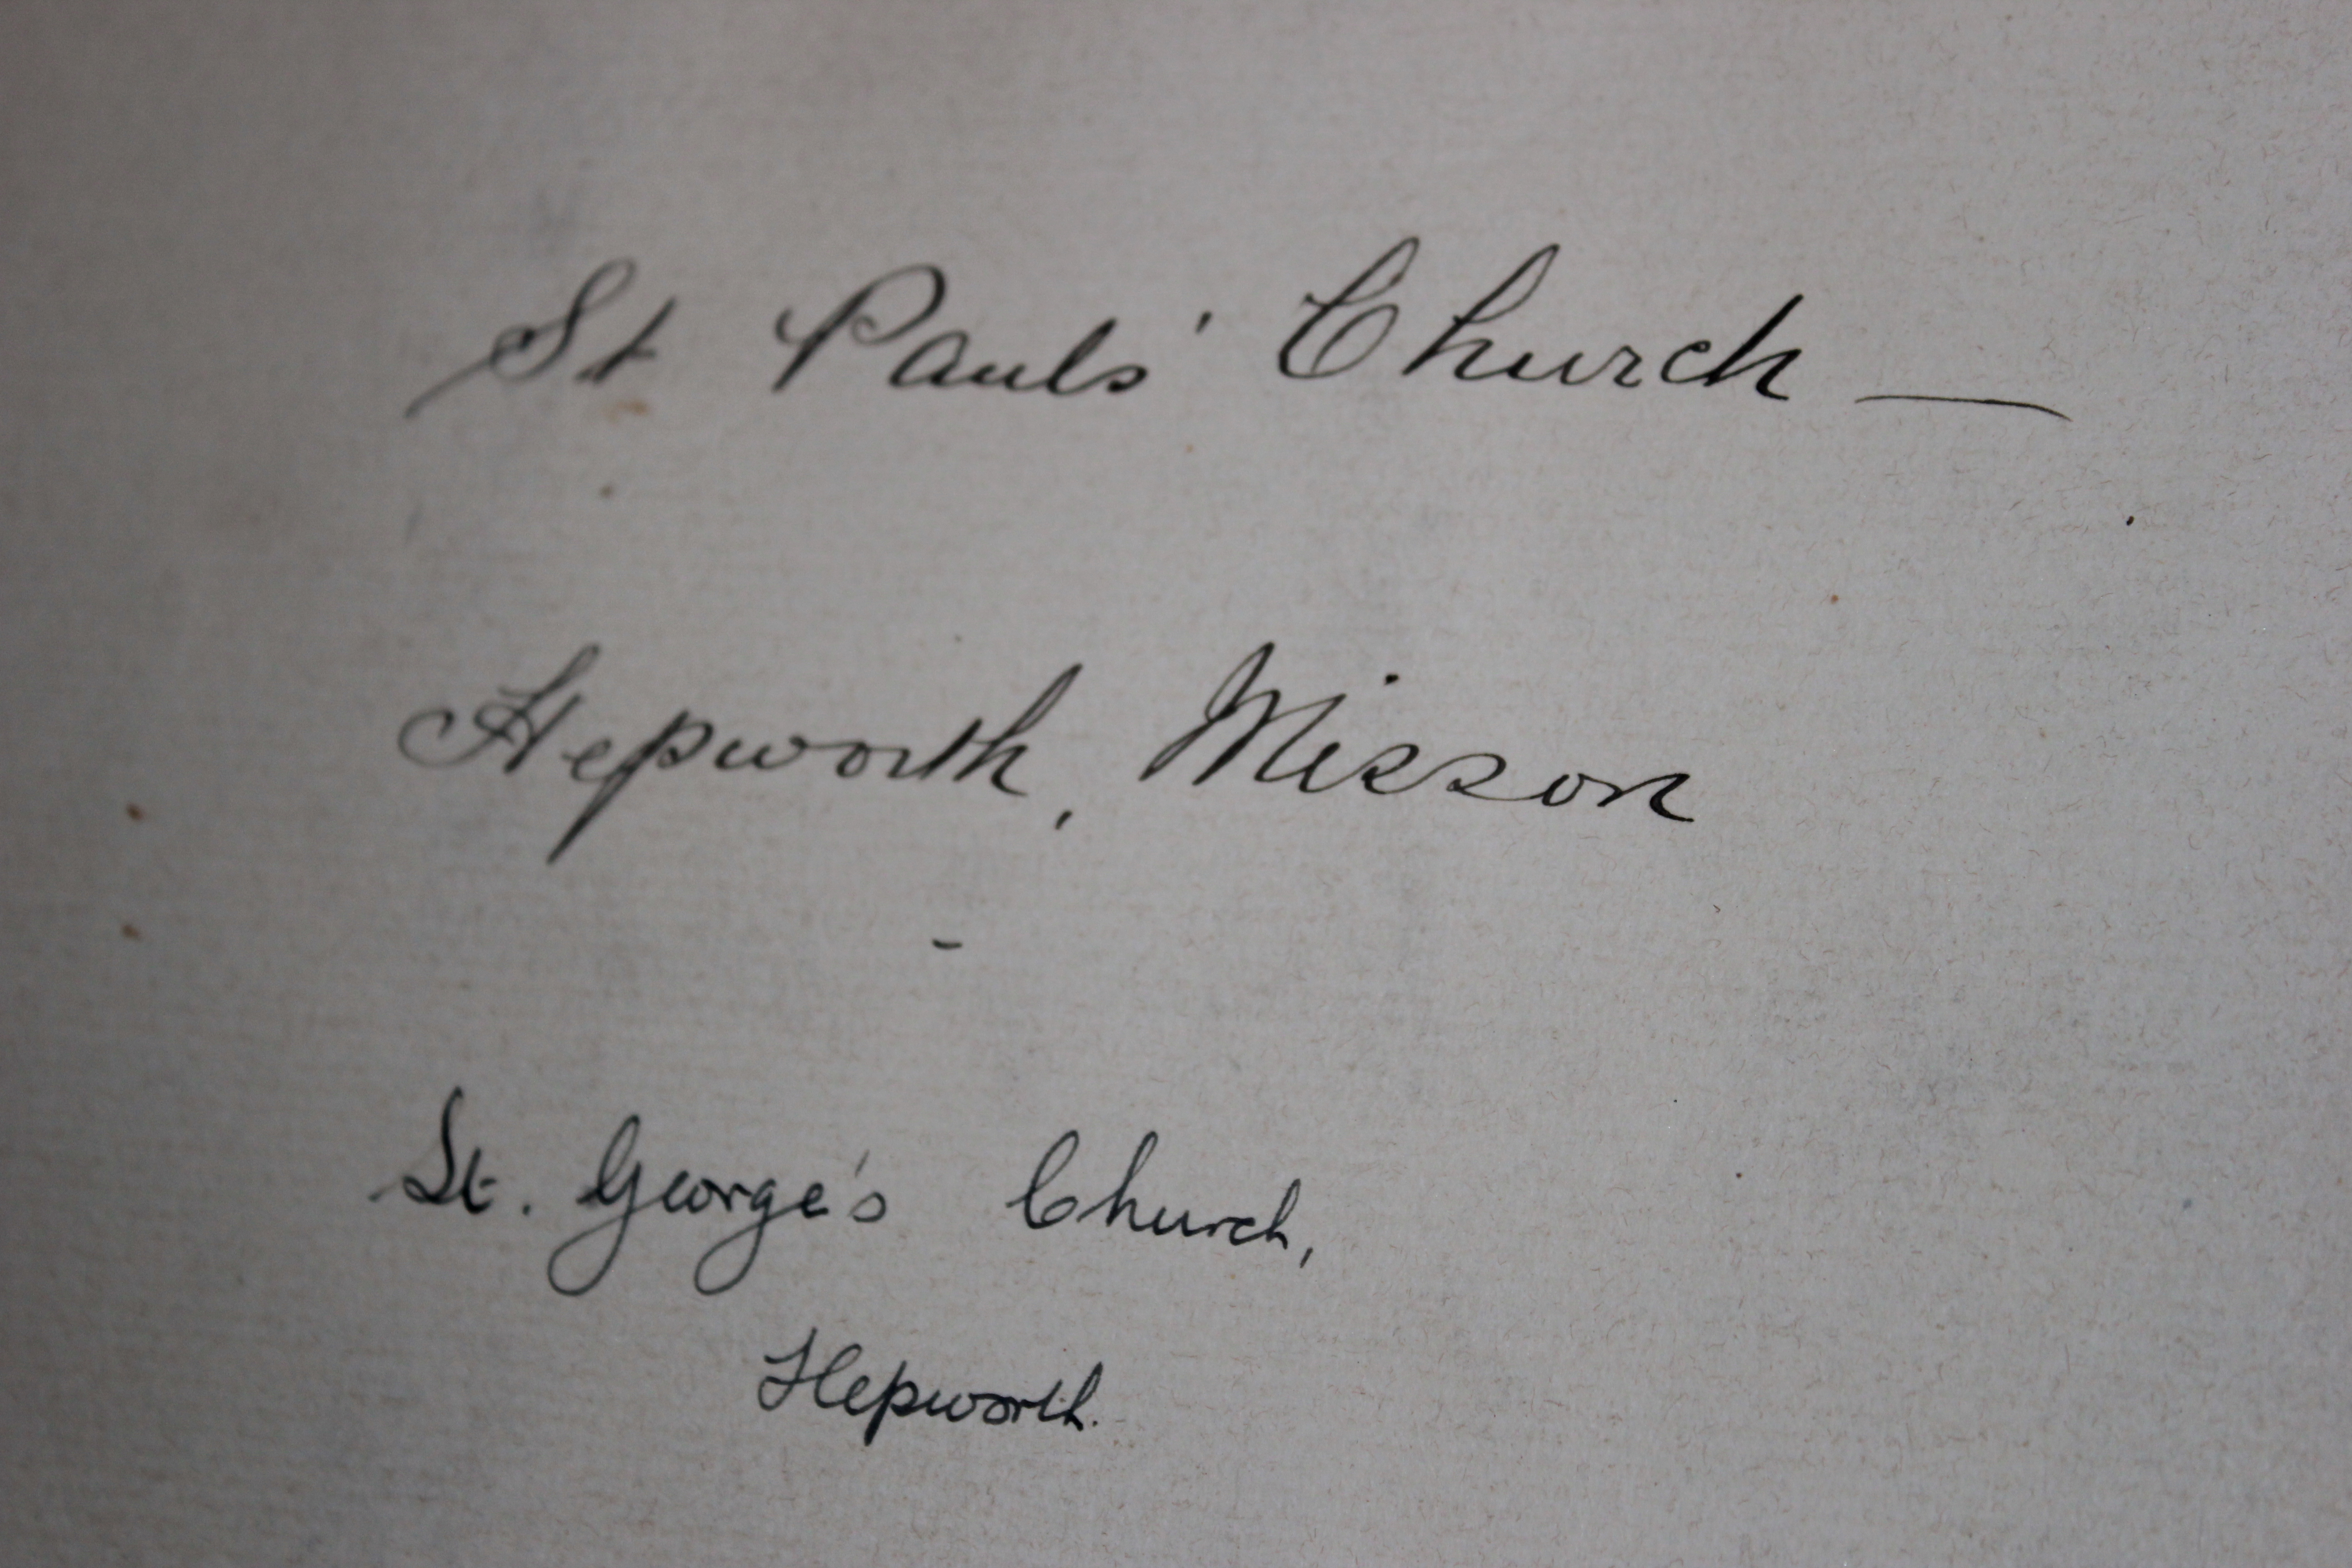 St Pauls' Church —
Hepworth, Misson
-
St. George's Church,
Hepworth.